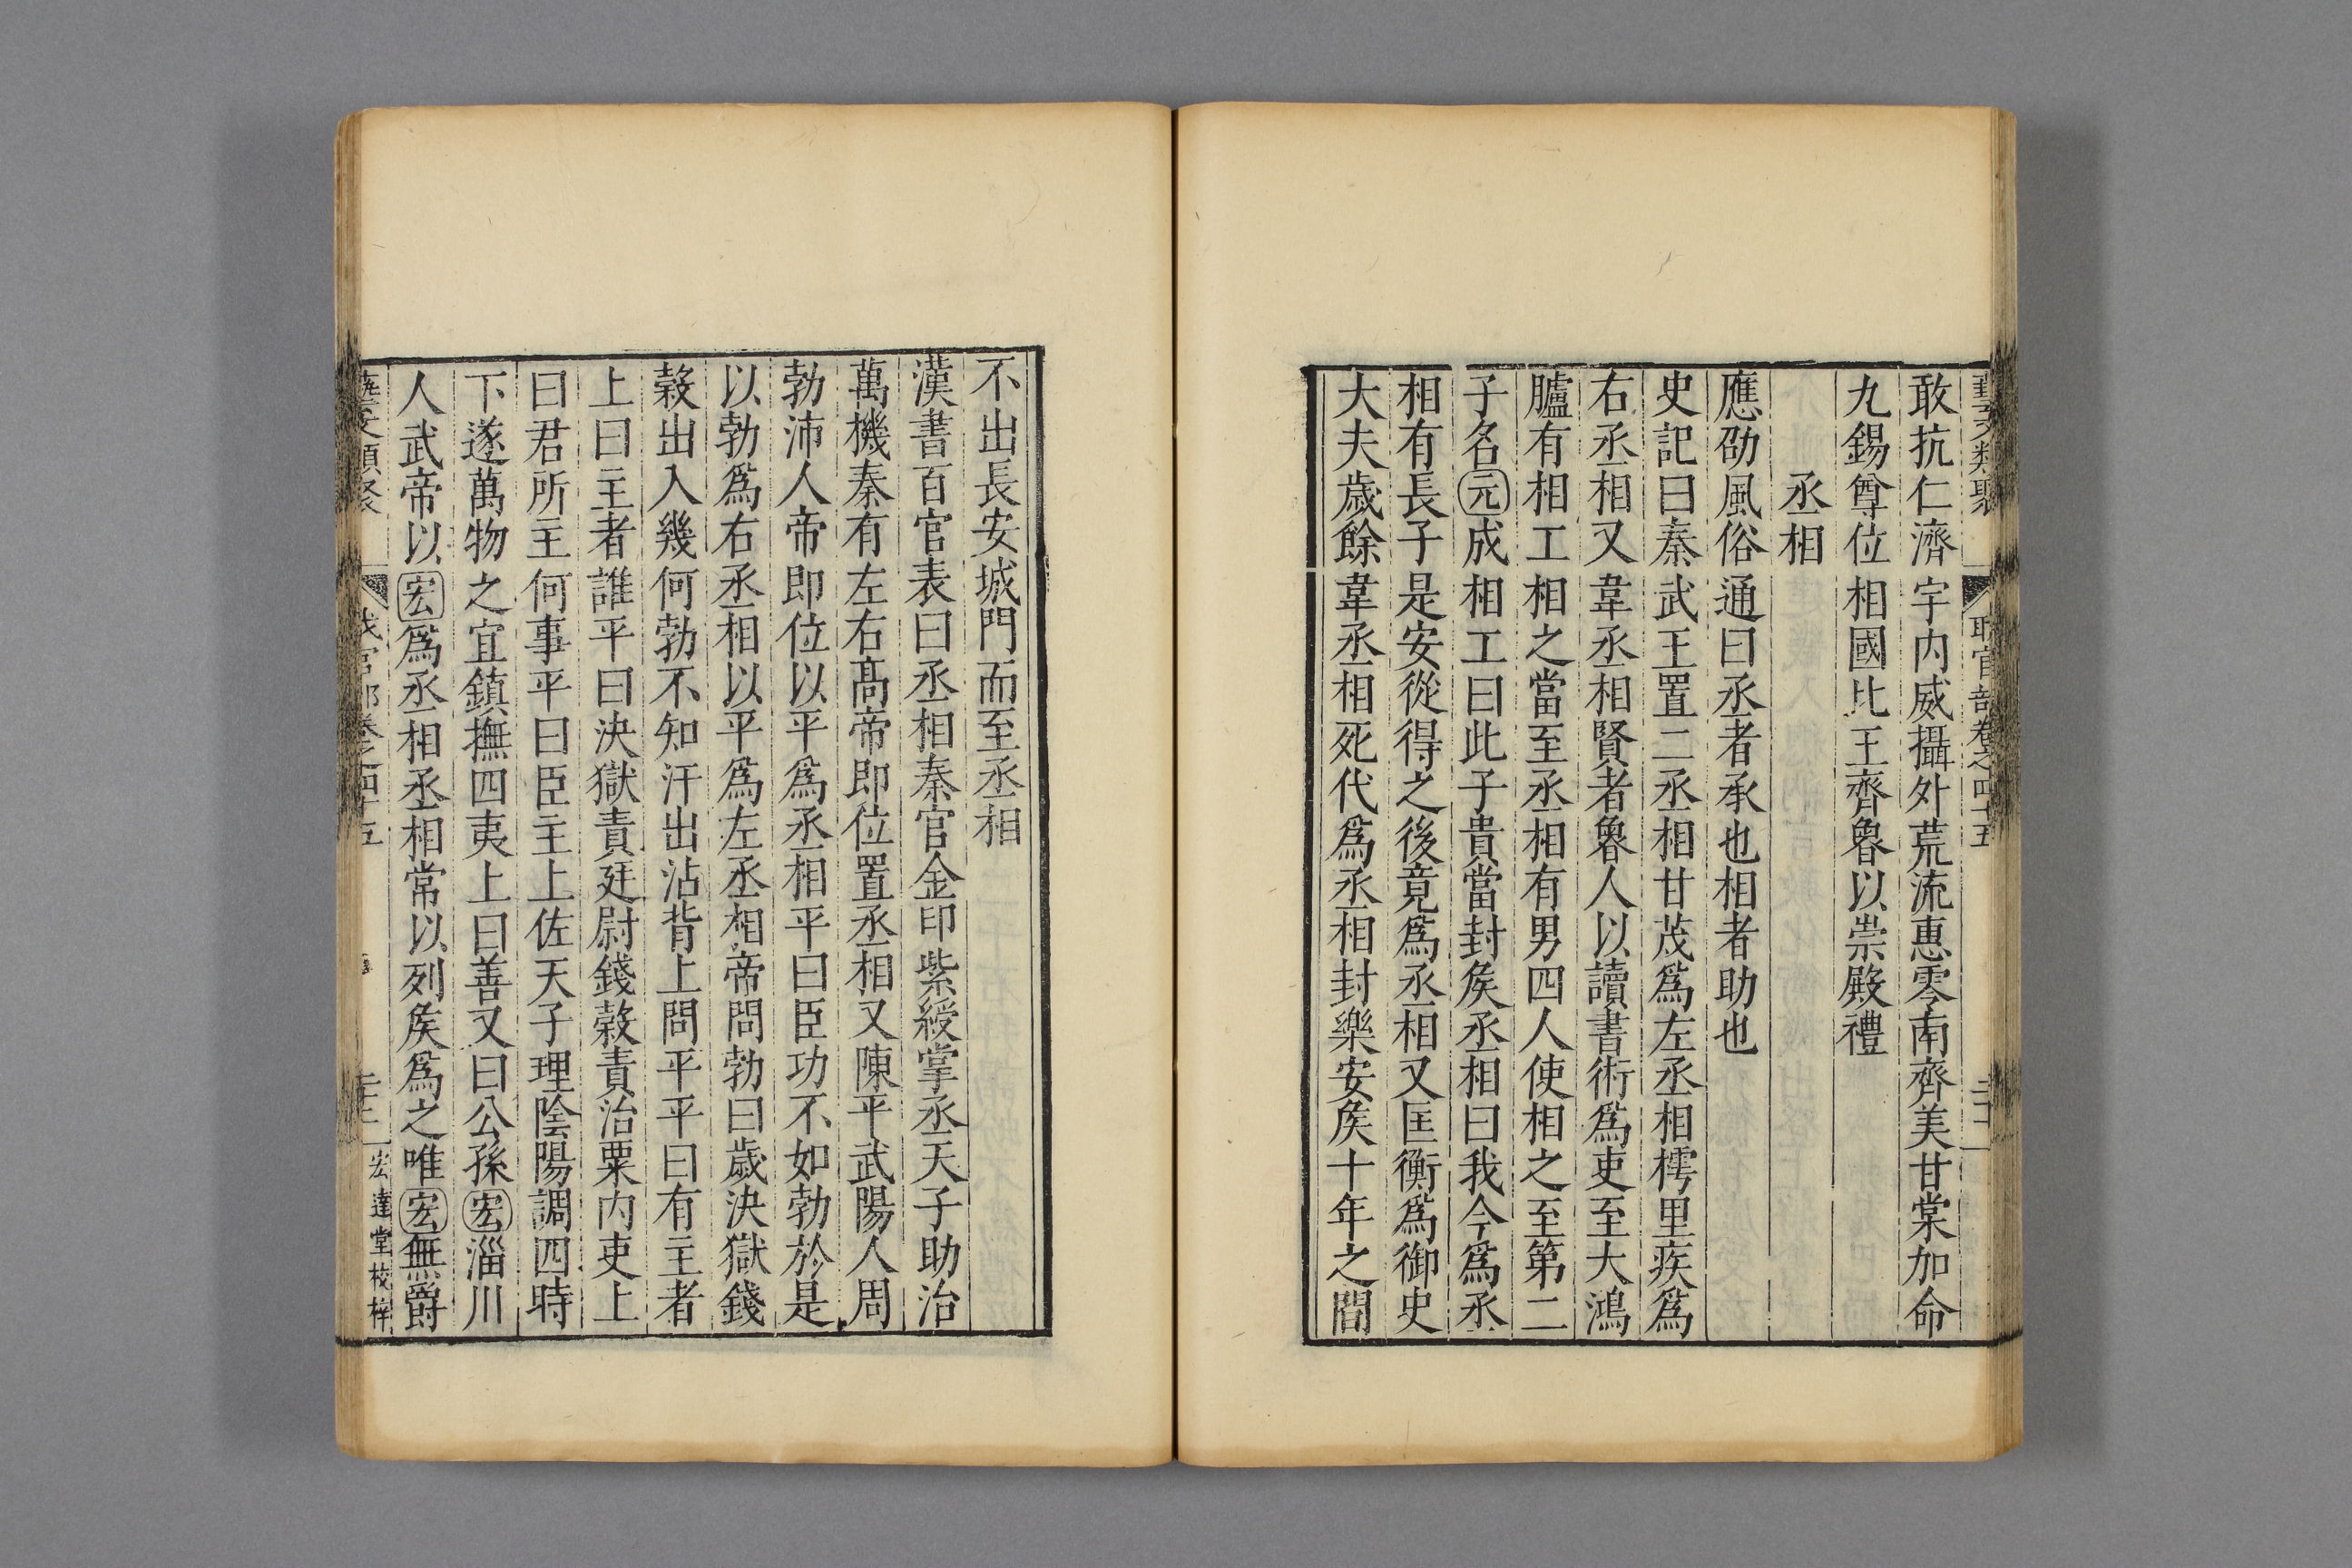 藝文類聚 職官部卷之四十五 二十二
敢抗仁濟宇内威攝外荒流惠零南齊美甘棠加命
九錫尊位相國比王齊魯以崇殿禮
丞相
應劭風俗通曰丞者承也相者助也
史記曰秦武王置二丞相甘茂爲左丞相樗里疾爲
右丞相又韋丞相賢者魯人以讀書術爲吏至大鴻
臚有相工相之當至丞相有男四人使相之至第二
子名元成相工曰此子貴當封矦丞相曰我今爲丞
相有長子是安從得之後竟爲丞相又匡衡爲御史
大夫歲餘韋丞相死代爲丞相封樂安矦十年之間
不出長安城門而至丞相
漢書百官表曰丞相秦官金印紫綬掌丞天子助治
萬機秦有左右高帝即位置丞相又陳平武陽人周
勃沛人帝即位以平爲丞相平曰臣功不如勃於是
以勃爲右丞相以平爲左丞相帝問勃曰歲決獄錢
穀出入幾何勃不知汗出沾背上問平平曰有主者
上曰主者誰平曰決獄責廷尉錢穀責治粟内吏上
曰君所主何事平曰臣主上佐天子理陰陽調四時
下遂萬物之宜鎮撫四夷上曰善又曰公孫宏淄川
人武帝以宏爲丞相丞相常以列矦爲之唯宏無爵
藝文類聚 職官部卷之四十五 二十二 宏達堂校梓